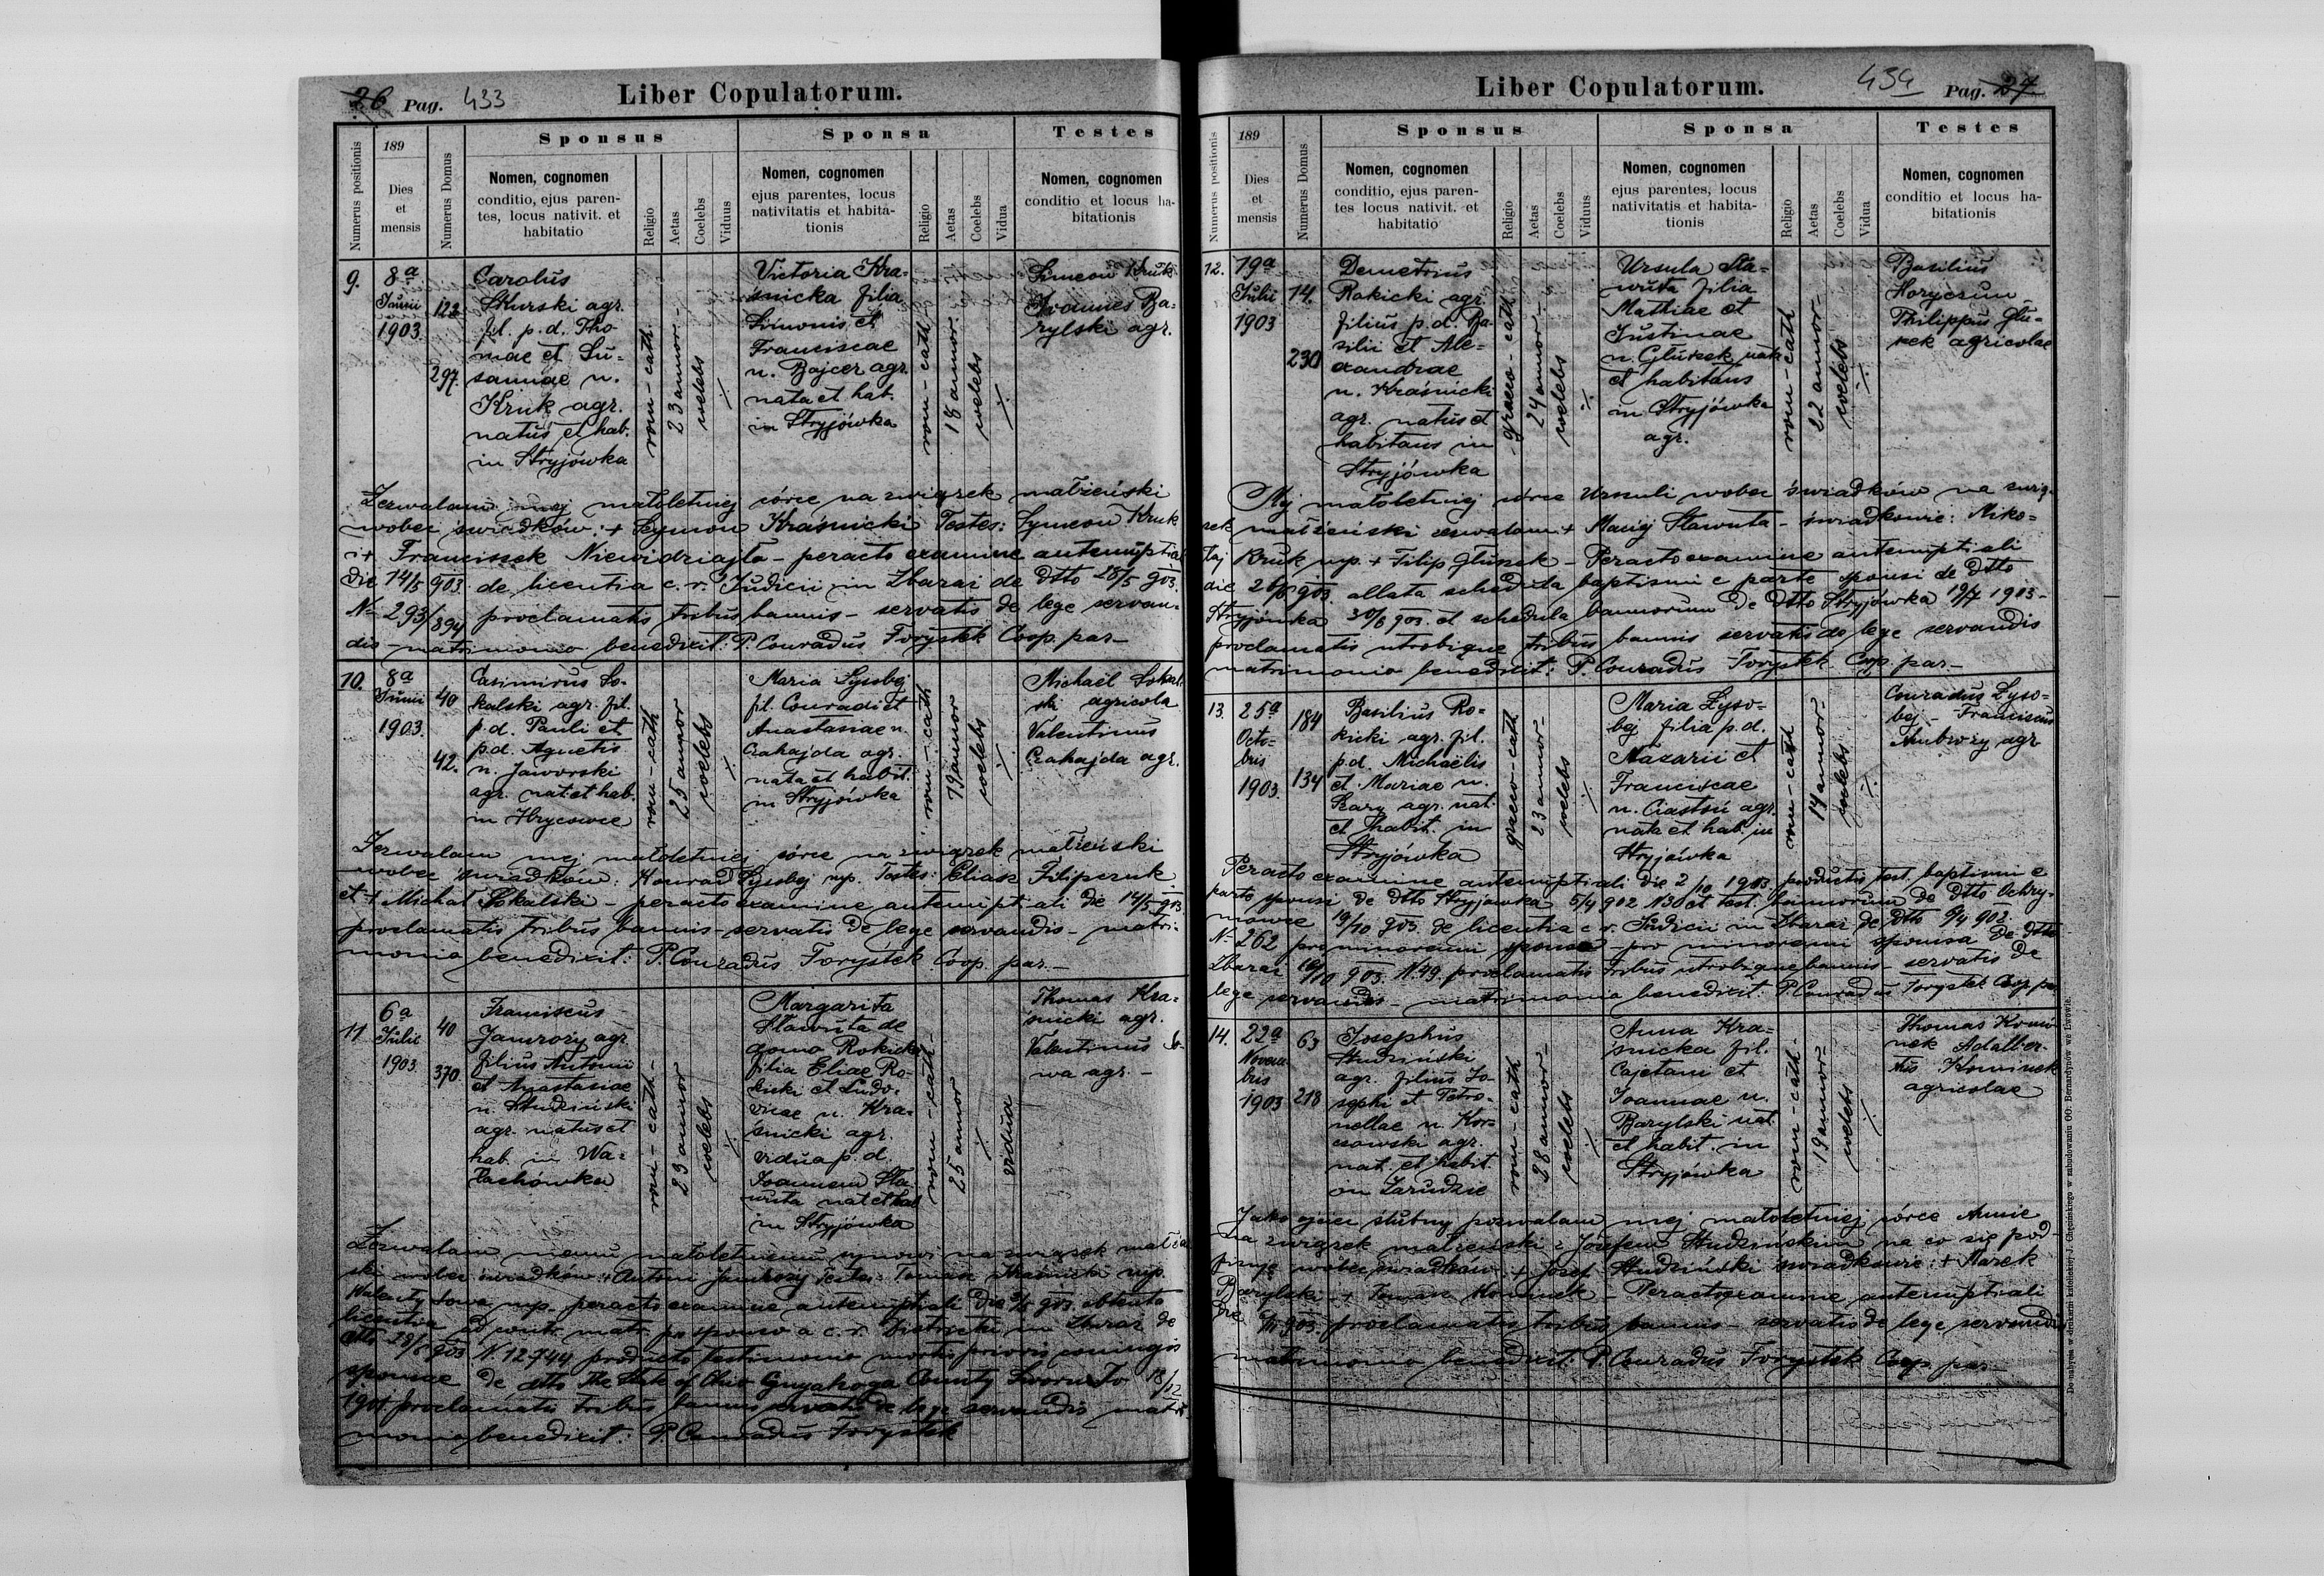 26 Pag. 433 Liber Copulatorum.
Numerus positionis
189
Dies
et
mensis
Numerus Domus
Sponsus
Nomen, cognomen
conditio, ejus paren-
tes, locus nativit. et
habitatio
Religio
Aetas
Coelebs
Viduus
Sponsa
Nomen, cognomen
ejus parentes, locus
nativitatis et habita-
tionis
Religio
Aetas
Coelebs
Vidua
Testes
Nomen, cognomen
conditio et locus ha-
bitationis
9.
8a
Junii
1903.
122
297.
Carolus
Skurski agr.
fil. p.d. Tho-
mae et Su-
sannae n.
Kruk agr.
natus et hab.
in Stryjówka
rom-cath.
23 annor-
coelebs
Victoria Kra-
śnicka filia
Simonis et
Franciscae
n. Bajcer agr.
nata et hab.
in Stryjówka
rom-cath
18 annor.
coelebs
Simeon Kruk
Joannes Ba-
rylski agr.
Zezwalam mej małoletniej córce na związek małżeński
wobec świadków: + Szymon Kraśnicki Testes: Symeon Kruk
+ Franciszek Niewidziajło - peracto examine antenuptiali
die 14/5 903. de licentia c. r. Judicii in Zbaraż de dtto 28/5 903.
No 293/894 proclamatis tribus bannis - servatis de lege servan-
dis - matrimonio benedixit: P. Conradus Forystek Coop. par-
10.
8a
Junii
1903.
40
42.
Casimirus So-
kalski agr. fil.
p.d. Pauli et
p.d. Agnetis
n. Jaworski
agr. nat. et hab.
in Hrycowce
rom-cath
25 annor
coelebs
Maria Łysobej
fil. Conradi et
Anastasiae n.
Czahajda agr.
nata et habit.
in Stryjówka
rom-cath
19 annor
coelebs
Michaël Sokal-
ski agricola
Valentinus
Czahajda agr.
Zezwalam mej małoletniej córce na związek małżeński
wobec świadków: Konrad Łysobej mp. Testes: Eliasz Filipczuk
et + Michał Sokalski - peracto examine antenuptiali die 14/5 903
proclamatis tribus bannis - servatis de lege servandis - matri-
monio benedixit: P. Conradus Forystek Coop. par.-
11
6a
Julii
1903.
40
370.
Franciscus
Jamroży agr.
filius Antonii
et Anastasiae
n. Studziński
agr. natus et
hab. in Wa-
łachówka
rom-cath-
23 annor
coelebs
Margarita
Sławuta de
domo Rokicka
filia Eliae Ro-
kicki et Ludo-
vicae n. Kra-
śnicki agr.
vidua p.d.
Joannem Sła-
wuta nat et hab
in Stryjówka
rom-cath-
25 annor
vidua
Thomas Kra-
śnicki agr.
Valentinus So-
wa agr. -
Zezwalam memu małoletniemu synowi na związek małżeń
ski wobec świadków: + Antoni Jamroży Testes: Tomasz Kraśnicki mp.
Walenty Sowa mp. peracto examine antenuptiali die 903. obtenta
licentia ad contr. matr. pro sponso a c. r. in Zbaraż de
dtto 28/6 903 N. 12744 producto testimonio mortis prioris coniugis
sponsae de dtto The State of Ohio Guyahoga County Sworn To 18/12
1901. proclamatis tribus bannis servatis de lege servandis matri-
monio benedixit: P. Conradus Forystek
Liber Copulatorum. 434 Pag. 27
Numerus positionis
189
Dies
et
mensis
Numerus Domus
Sponsus
Nomen, cognomen
conditio, ejus paren-
tes locus nativit. et
habitatio
Religio
Aetas
Coelebs
Viduus
Sponsa
Nomen, cognomen
ejus parentes, locus
nativitatis et habita-
tionis
Religio
Aetas
Coelebs
Vidua
Testes
Nomen, cognomen
conditio et locus ha-
bitationis
12.
19a
Julii
1903
14.
230
Demetrius
Rokicki agr.
filius p.d. Ba-
silii et Ale-
xandrae
n. Kraśnicki
agr. natus et
habitans in
Stryjówka
graeco-cath
24 annor-
coelebs
Ursula Sła-
wuta filia
Mathiae et
Justinae
n. Gluszek nata
et habitans
in Stryjówka
agr.
rom-cath
22 annor-
coelebs
Basilius
Horyczun
Philippus Glu-
szek agricolae
Mej małoletniej córce Urszuli wobec świadków na zwią-
zek małżeński zezwalam + Maciej Sławuta - świadkowie: Miko-
łaj Kruk mp. + Filip Gluszek - Peracto examine antenuptiali
die 26/6 903. allata schedula baptismi e parte sponsi de dtto
Stryjówka 30/6 903. et schedula bannorum de dtto Stryjówka 19/7 1903-
proclamatis utrobique tribus bannis servatis de lege servandis
matrimonio benedixit: P. Conradus Forystek Coop. par-
13.
25a
Octo-
bris
1903.
184
134
Basilius Ro-
kicki agr. fil.
p.d. Michaëlis
et Mariae n.
agr. nat.
et habit. in
Stryjówka
graeco-cath
23 annor-
coelebs
Maria Łyso-
bej filia p.d.
Nazarii et
Franciscae
n. Ciastoń agr.
nata et hab. in
Stryjówka
rom-cath
17 annor-
coelebs
Conradus Łyso-
bej - Franciscus
Ambroży agr.
Peracto examine antenuptiali die 2/10 1903. productis test. baptismi e
parte sponsi de dtto Stryjówka 5/4 902 N30 et test. bannorum de dtto Ochry-
mowce 19/10 903. de licentia c. r. Judicii in Zbaraż de dtto 9/4 902
No 262 pro minorenni sponso - pro minorenni sponsa de dtto
Zbaraż 10/10 903. N.49. proclamatis tribus utrobique bannis - servatis de
lege servandis - matrimonio benedixit. P. Conradus Forystek Coop par
14.
22a
Novem
bris
1903
63
218
Josephus
Studziński
agr. filius Jo-
sephi et Petro-
nellae n. Kor-
czowski agr.
nat. et habit.
in Zarudzie
rom-cath
28 annor-
coelebs
Anna Kra-
śnicka fil.
Cajetani et
Joannae n.
Barylski nat.
et habit. in
Stryjówka
rom-cath-
19 annor-
coelebs
Thomas Komi-
nek Adalber-
tus Kominek
agricolae
Jako ojciec ślubny pozwalam mej małoletniej córce Annie
na związek małżeński z Józefem Studzińskim na co się pod-
pisuję wobec świadków: + Józef Studziński świadkowie: + Marek
Barylski + Tomasz Kominek - Peracto examine antenuptiali
die 903. proclamatis tribus bannis - servatis de lege servandis
matrimonio benedixit: P. Conradus Forystek Coop. par-
Do nabycia w drukarni katolickiej J. Chęcińskiego w zabudowaniu OO. Bernardynów we Lwowie.